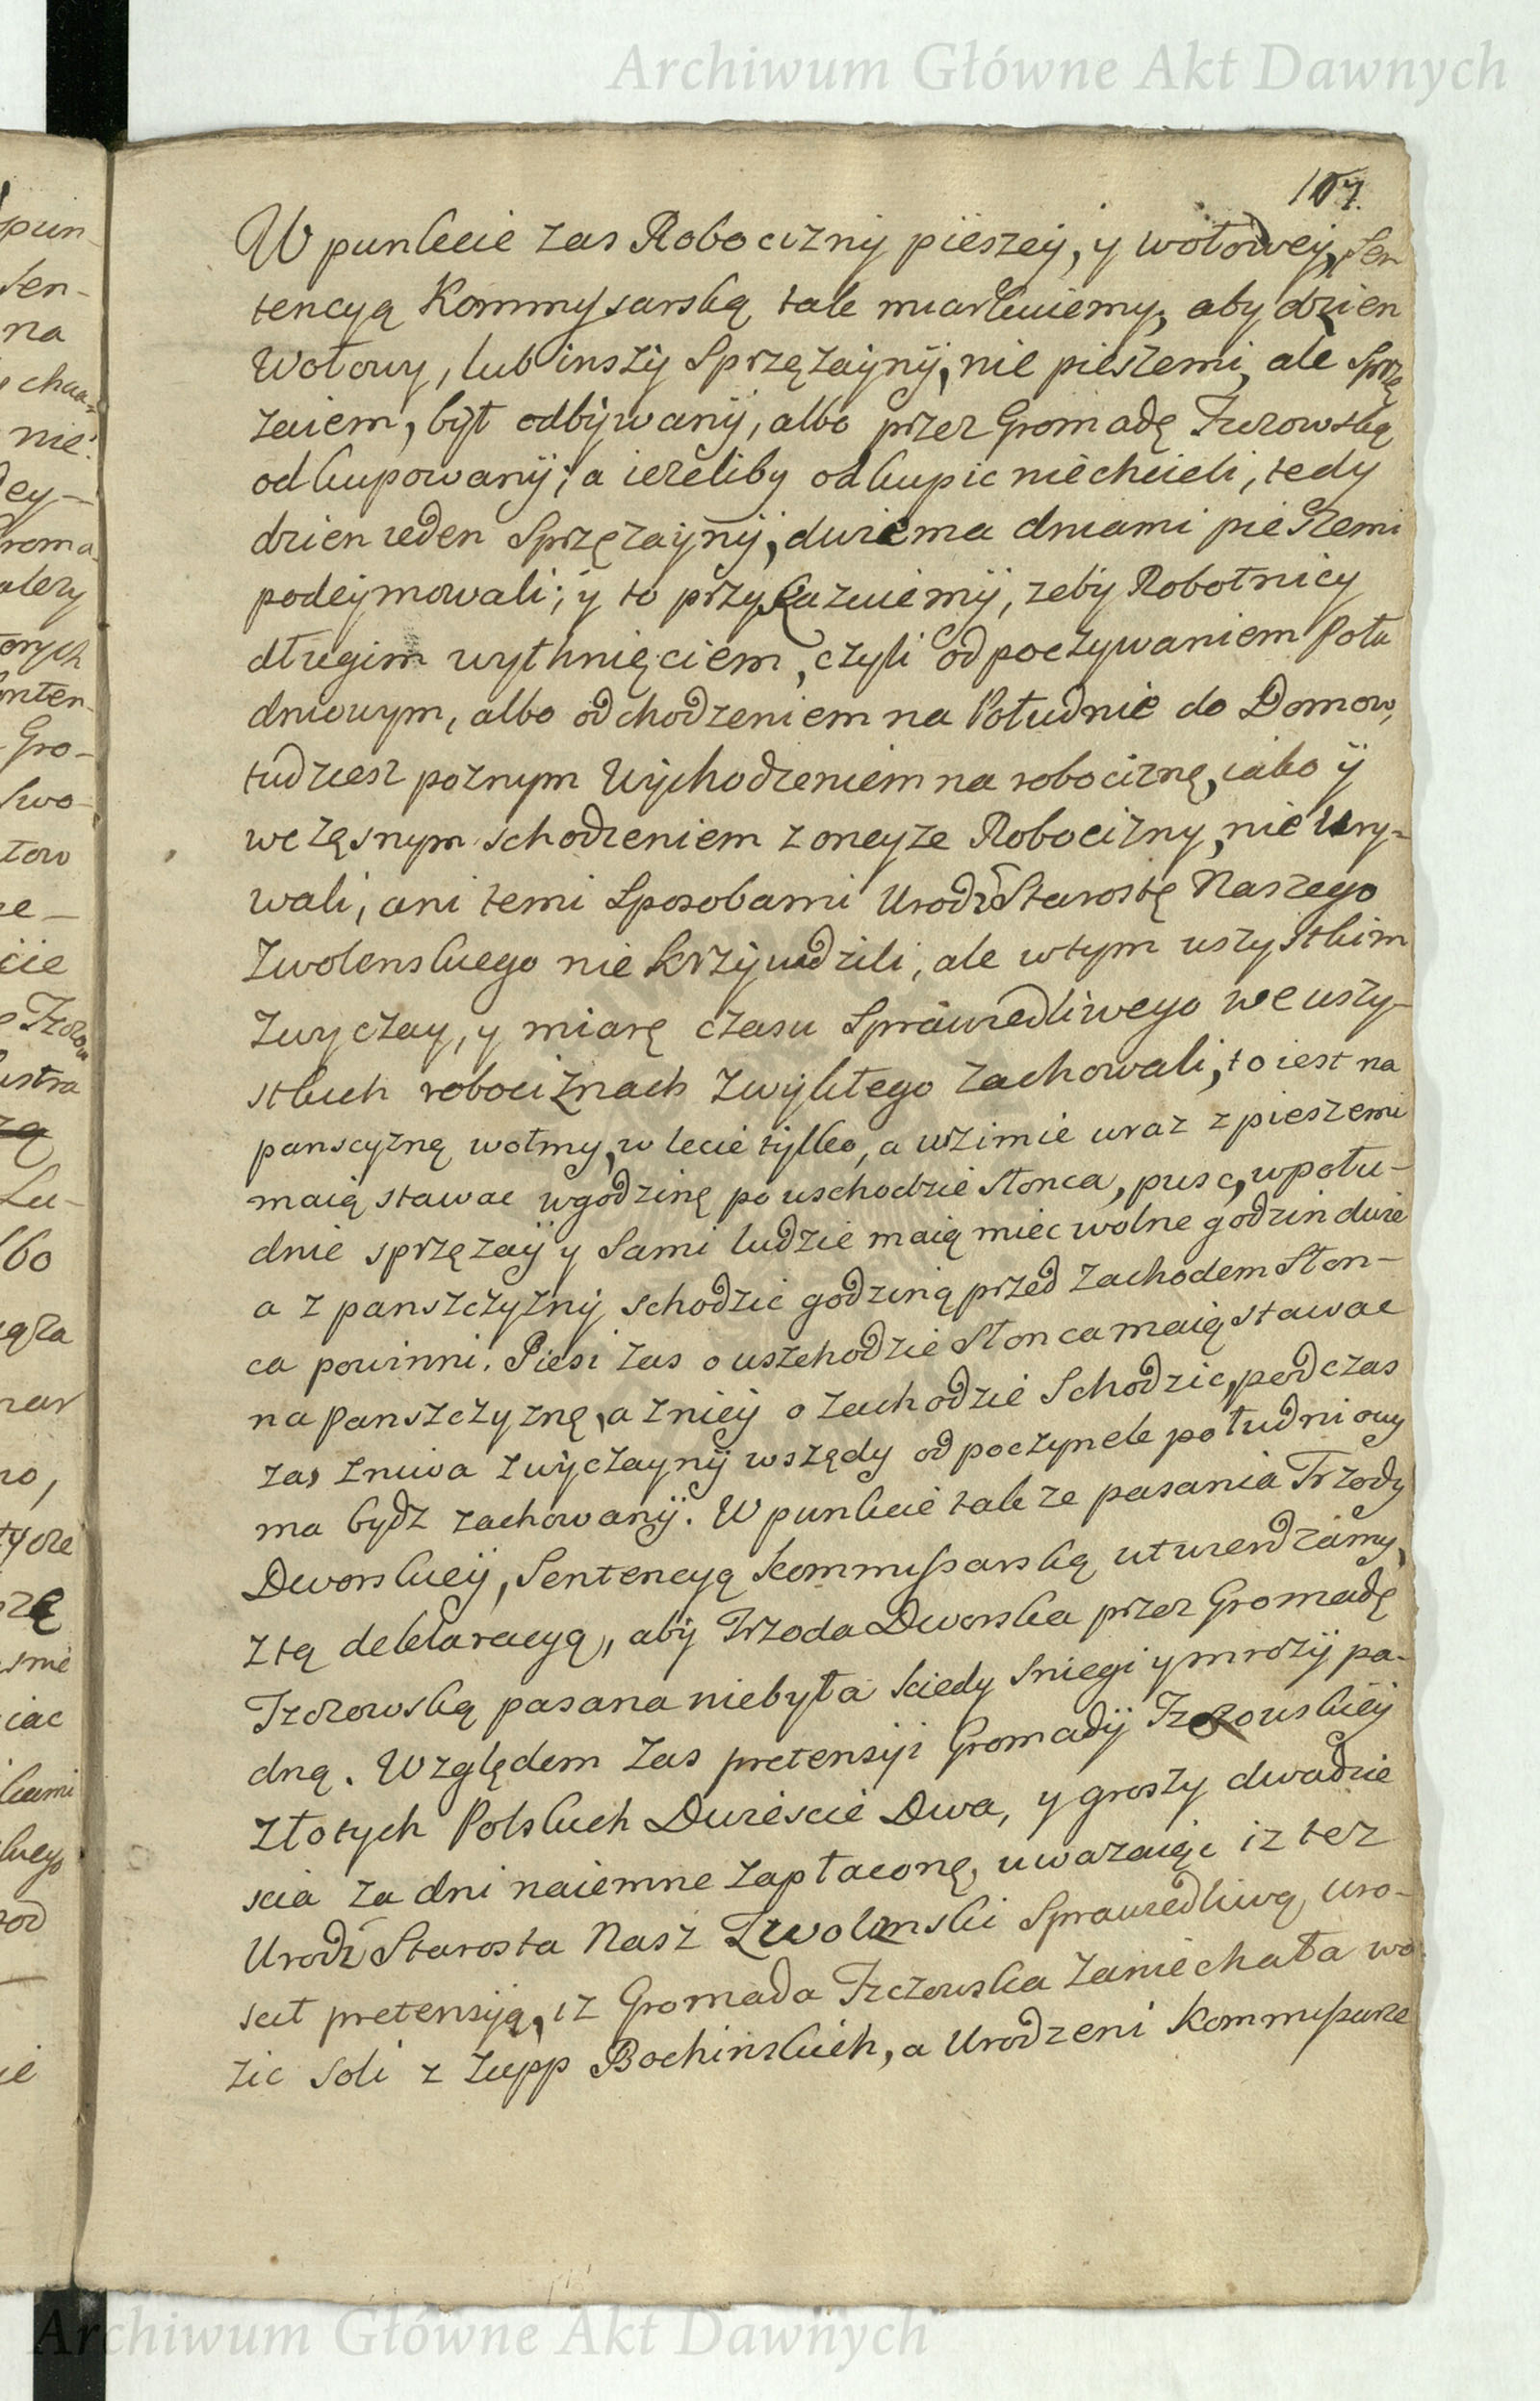 Archiwum Główne Akt Dawnych
107.
W punkcie zas Robocizny pieszey, y wołowey, Sen
tencyą Kommyssarską tak miarkuiemy, aby dzien
Wołowy, lub inszy Sprzęzayny, nie pieszemi, ale Sprzę
zaiem, był odbywany, albo przez Gromadę Tczowską
odkupowany; a iezeliby odkupic niechcieli, tedy
dzien ieden Sprzęzayny, dwiema dniami pieszemi
podeymowali; y to przykazuiemy, zeby Robotnicy
długim wytchnięciem, czyli odpoczywaniem Połu
dniowym, albo odchodzeniem na Południe do Domow,
tudziesz poznym Wychodzeniem na robociznę, iako y
wczęsnym schodzeniem z oneyze Robocizny, nie Ury-
wali, ani temi Sposobami Urodz Starostę Naszego
Zwolenskiego nie krzywdzili, ale w tym wszystkim
Zwyczay, y miarę czasu Sprawiedliwego we wszy-
stkich robociznach Zwykłego zachowali, to iest na
panscyznę wołmy, w lecie tylko, a w zimie wraz z pieszemi
maią stawac w godzinę po wschodzie słonca, pusc, w połu-
dnie sprzęzay y Sami ludzie maią miec wolne godzin dwie
a z panszczyzny schodzic godziną przed zachodem Słon-
ca powinni. Piesi zas o wszchodzie Słonca maią stawac
na panszczyznę, a zniey o zachodzie Schodzic, podczas
zas zniwa zwyczayny wszędy odpoczynek południowy
ma bydz zachowany. W punkcie takze pasania Trzody
Dworskiey, Sentencyą Kommyssarską utwierdzamy,
z tą deklaracyą, aby Trzoda Dworska przez Gromadę
Tczowską pasana niebyła kiedy Sniegi y mrozy pa-
dną. Względem zas pretensyi Gromady Tczowskiey
Złotych Polskich Dwiescie Dwa, y groszy dwadzie
scia za dni naiemne zapłaconę, uwazaiąc iz tez
Urodz Starosta Nasz Zwolenski Sprawiedliwą, uro-
scił pretensyją, iz Gromada Tczowska zaniechała wo
zic soli z zupp Bochinskich, a Urodzeni Kommyssarze
Archiwum Główne Akt Dawnych